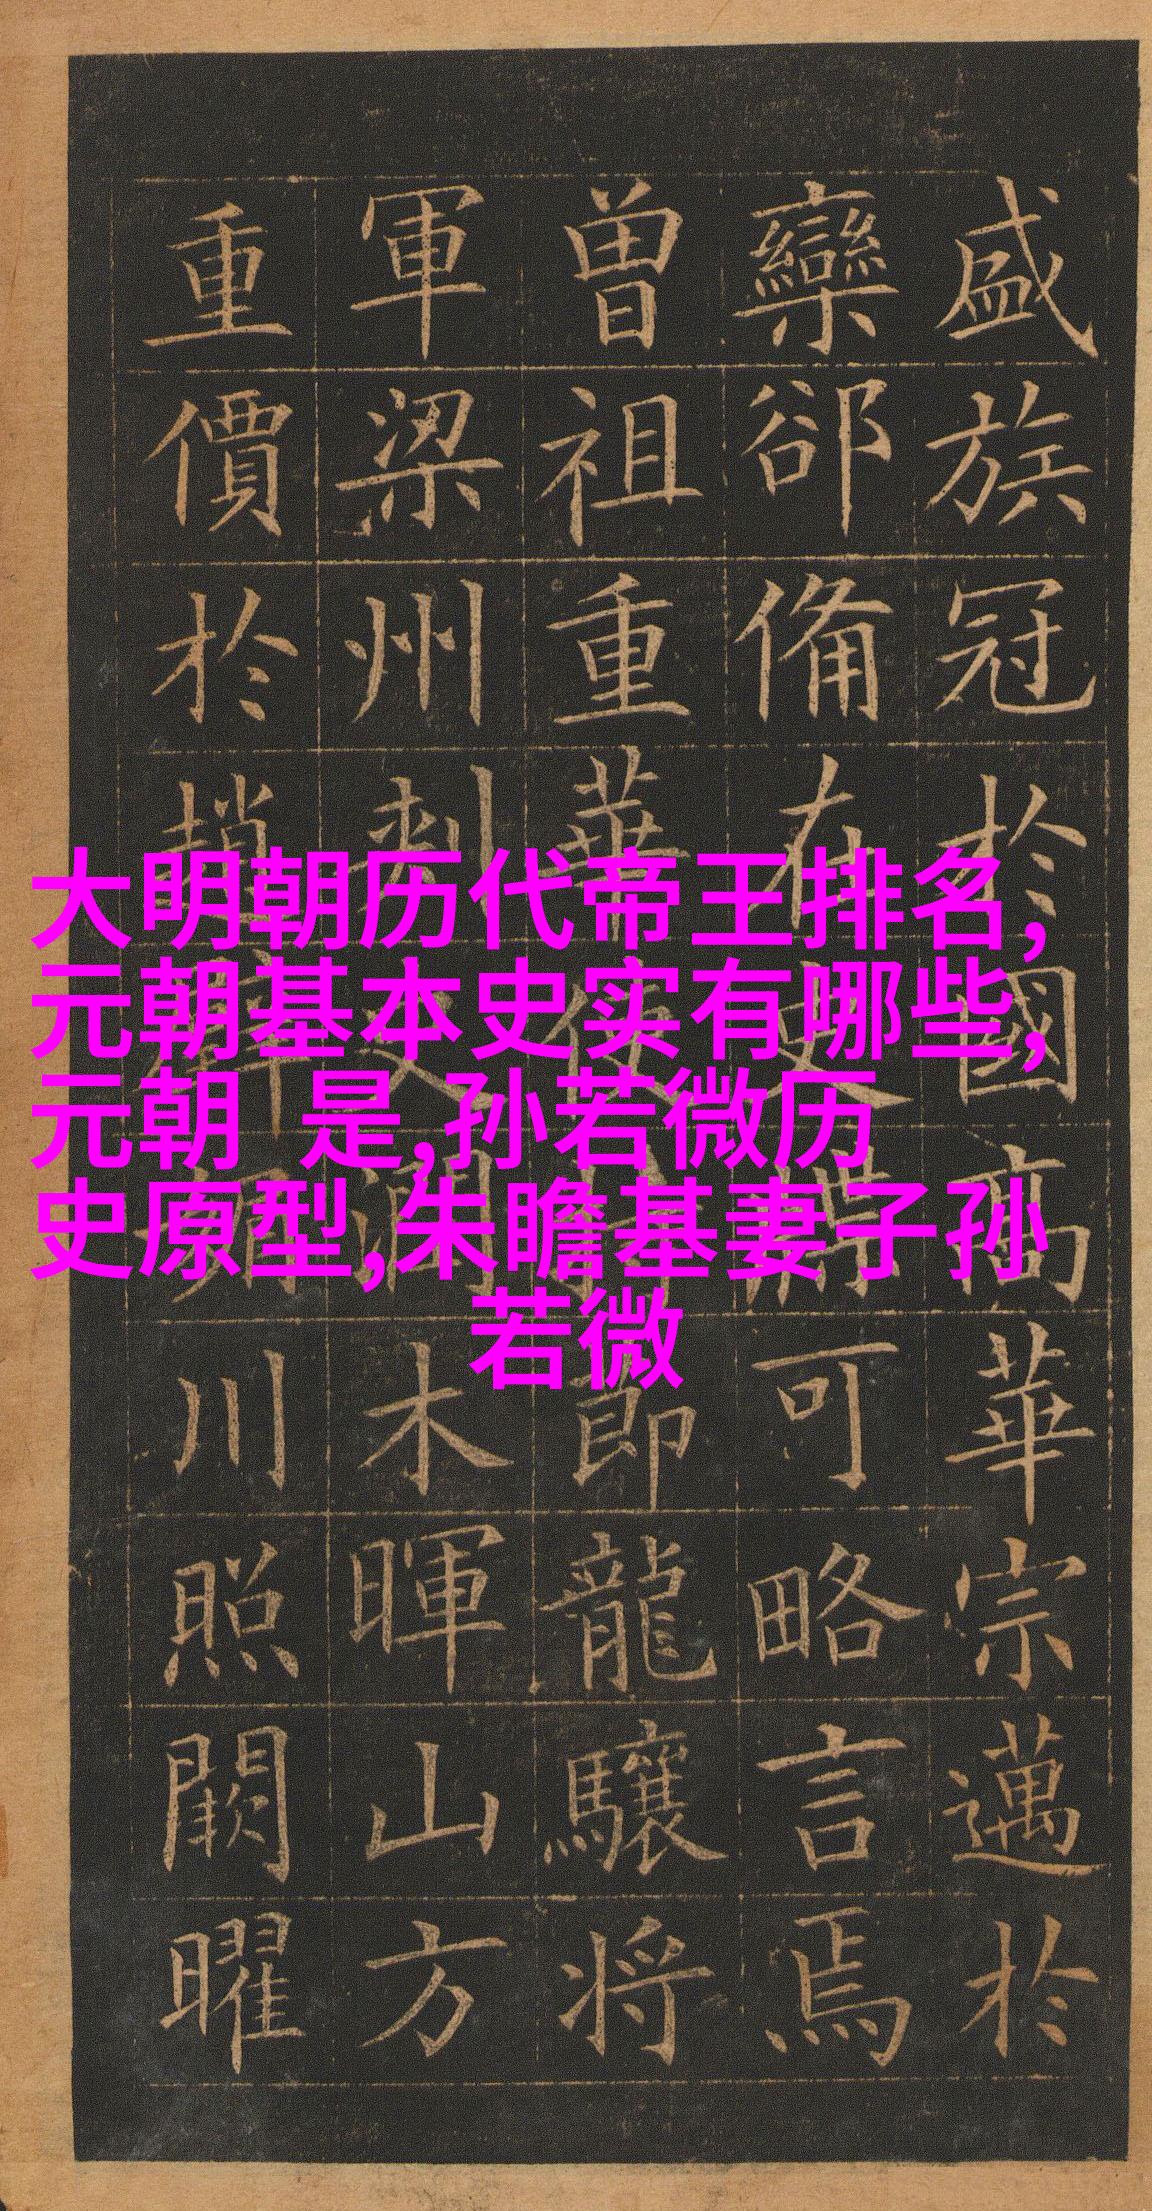 大明朝历代帝王排名,
元朝基本史实有哪些,
元朝 是,孙若微历
史原型,朱瞻基妻子孙
若微
盛族冠於國高華宗邁於
欒郤備在史牒可略言焉
曾祖重華使持節龍驤将
軍梁州刺史潤木暉山方
重價於趙川照闕曜